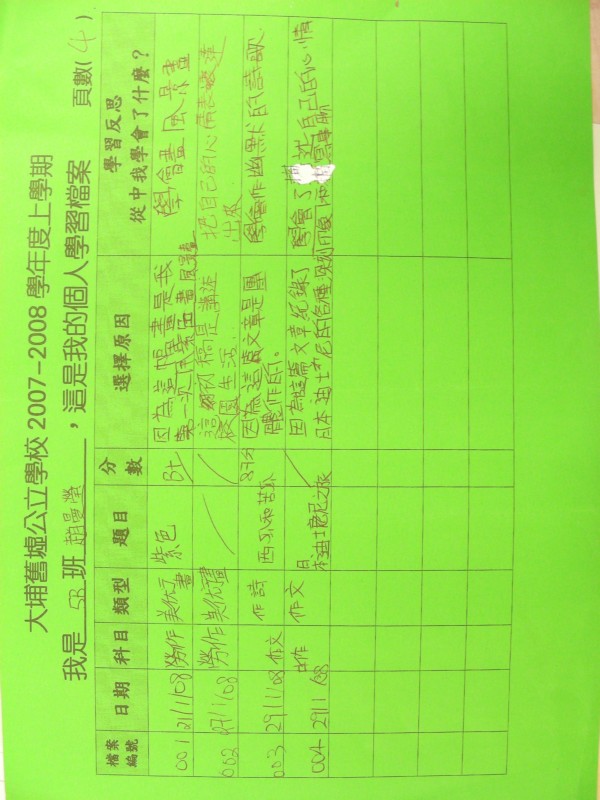 大埔舊墟公立學校 2007-2008 學年度上學期
我是 5B 班 趙曼瑩 ，這是我的個人學習檔案 頁數( 4 )
檔案編號 日期 科目 類型 題目 分數 選擇原因 學習反思
從中我學會了什麼？
001 21/1/08 勞作 紫色 B+ 因為這幅畫是我
第一次用紫色畫風景畫 學會畫風景畫
002 27/1/08 勞作 這個 稿是講述
校園生活. 把自己的心情表達
出來
003 29/1/08 作文 作詩 西瓜和苦瓜 87分 因為這篇文章是團
體作的. 學會作幽默的詩歌.
004 29/1/08 中作 作文 日本迪士尼之旅 因為這篇文章紀錄了
日本迪士尼的各種 學會了 自己的心情